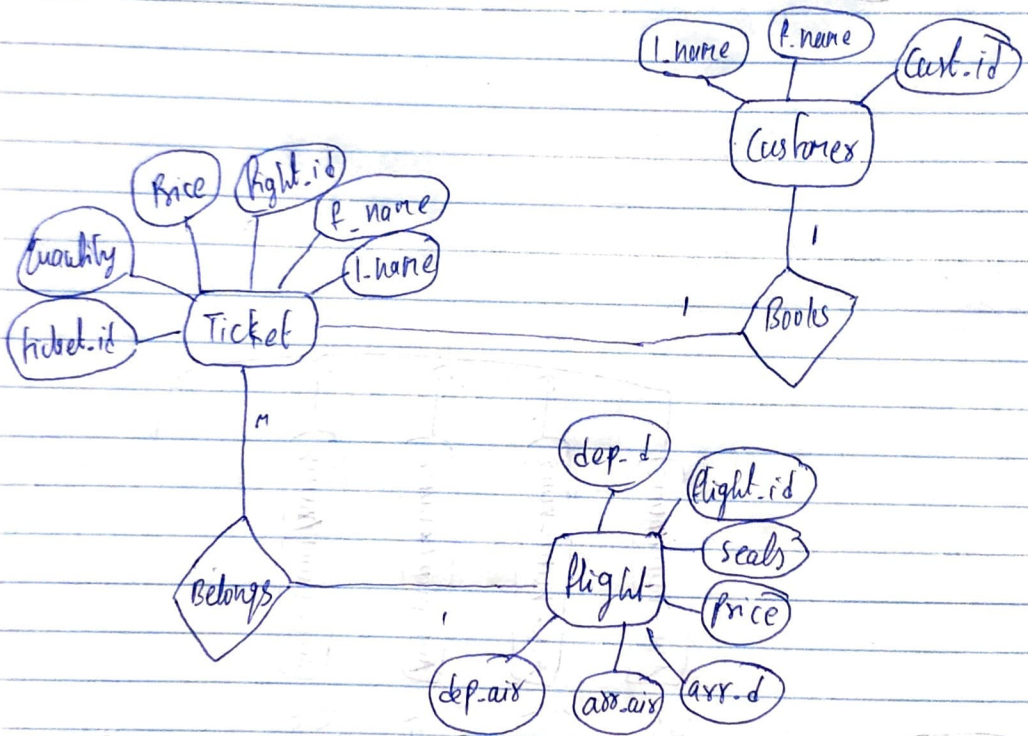 l_name
f_name
Cust_id
Customer
1
Price
flight_id
f_name
l_name
Quantity
ticket_id
Ticket
1
Books
M
dep_d
flight_id
seats
flight
Price
Belongs
1
dep_air
arr_air
arr_d